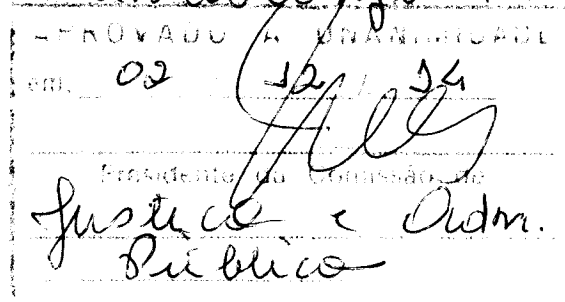 APROVADO A UNANIMIDADE
em, 02 / 12 / 14
Presidente da Comissão de
Justiça e Adm.
Pública